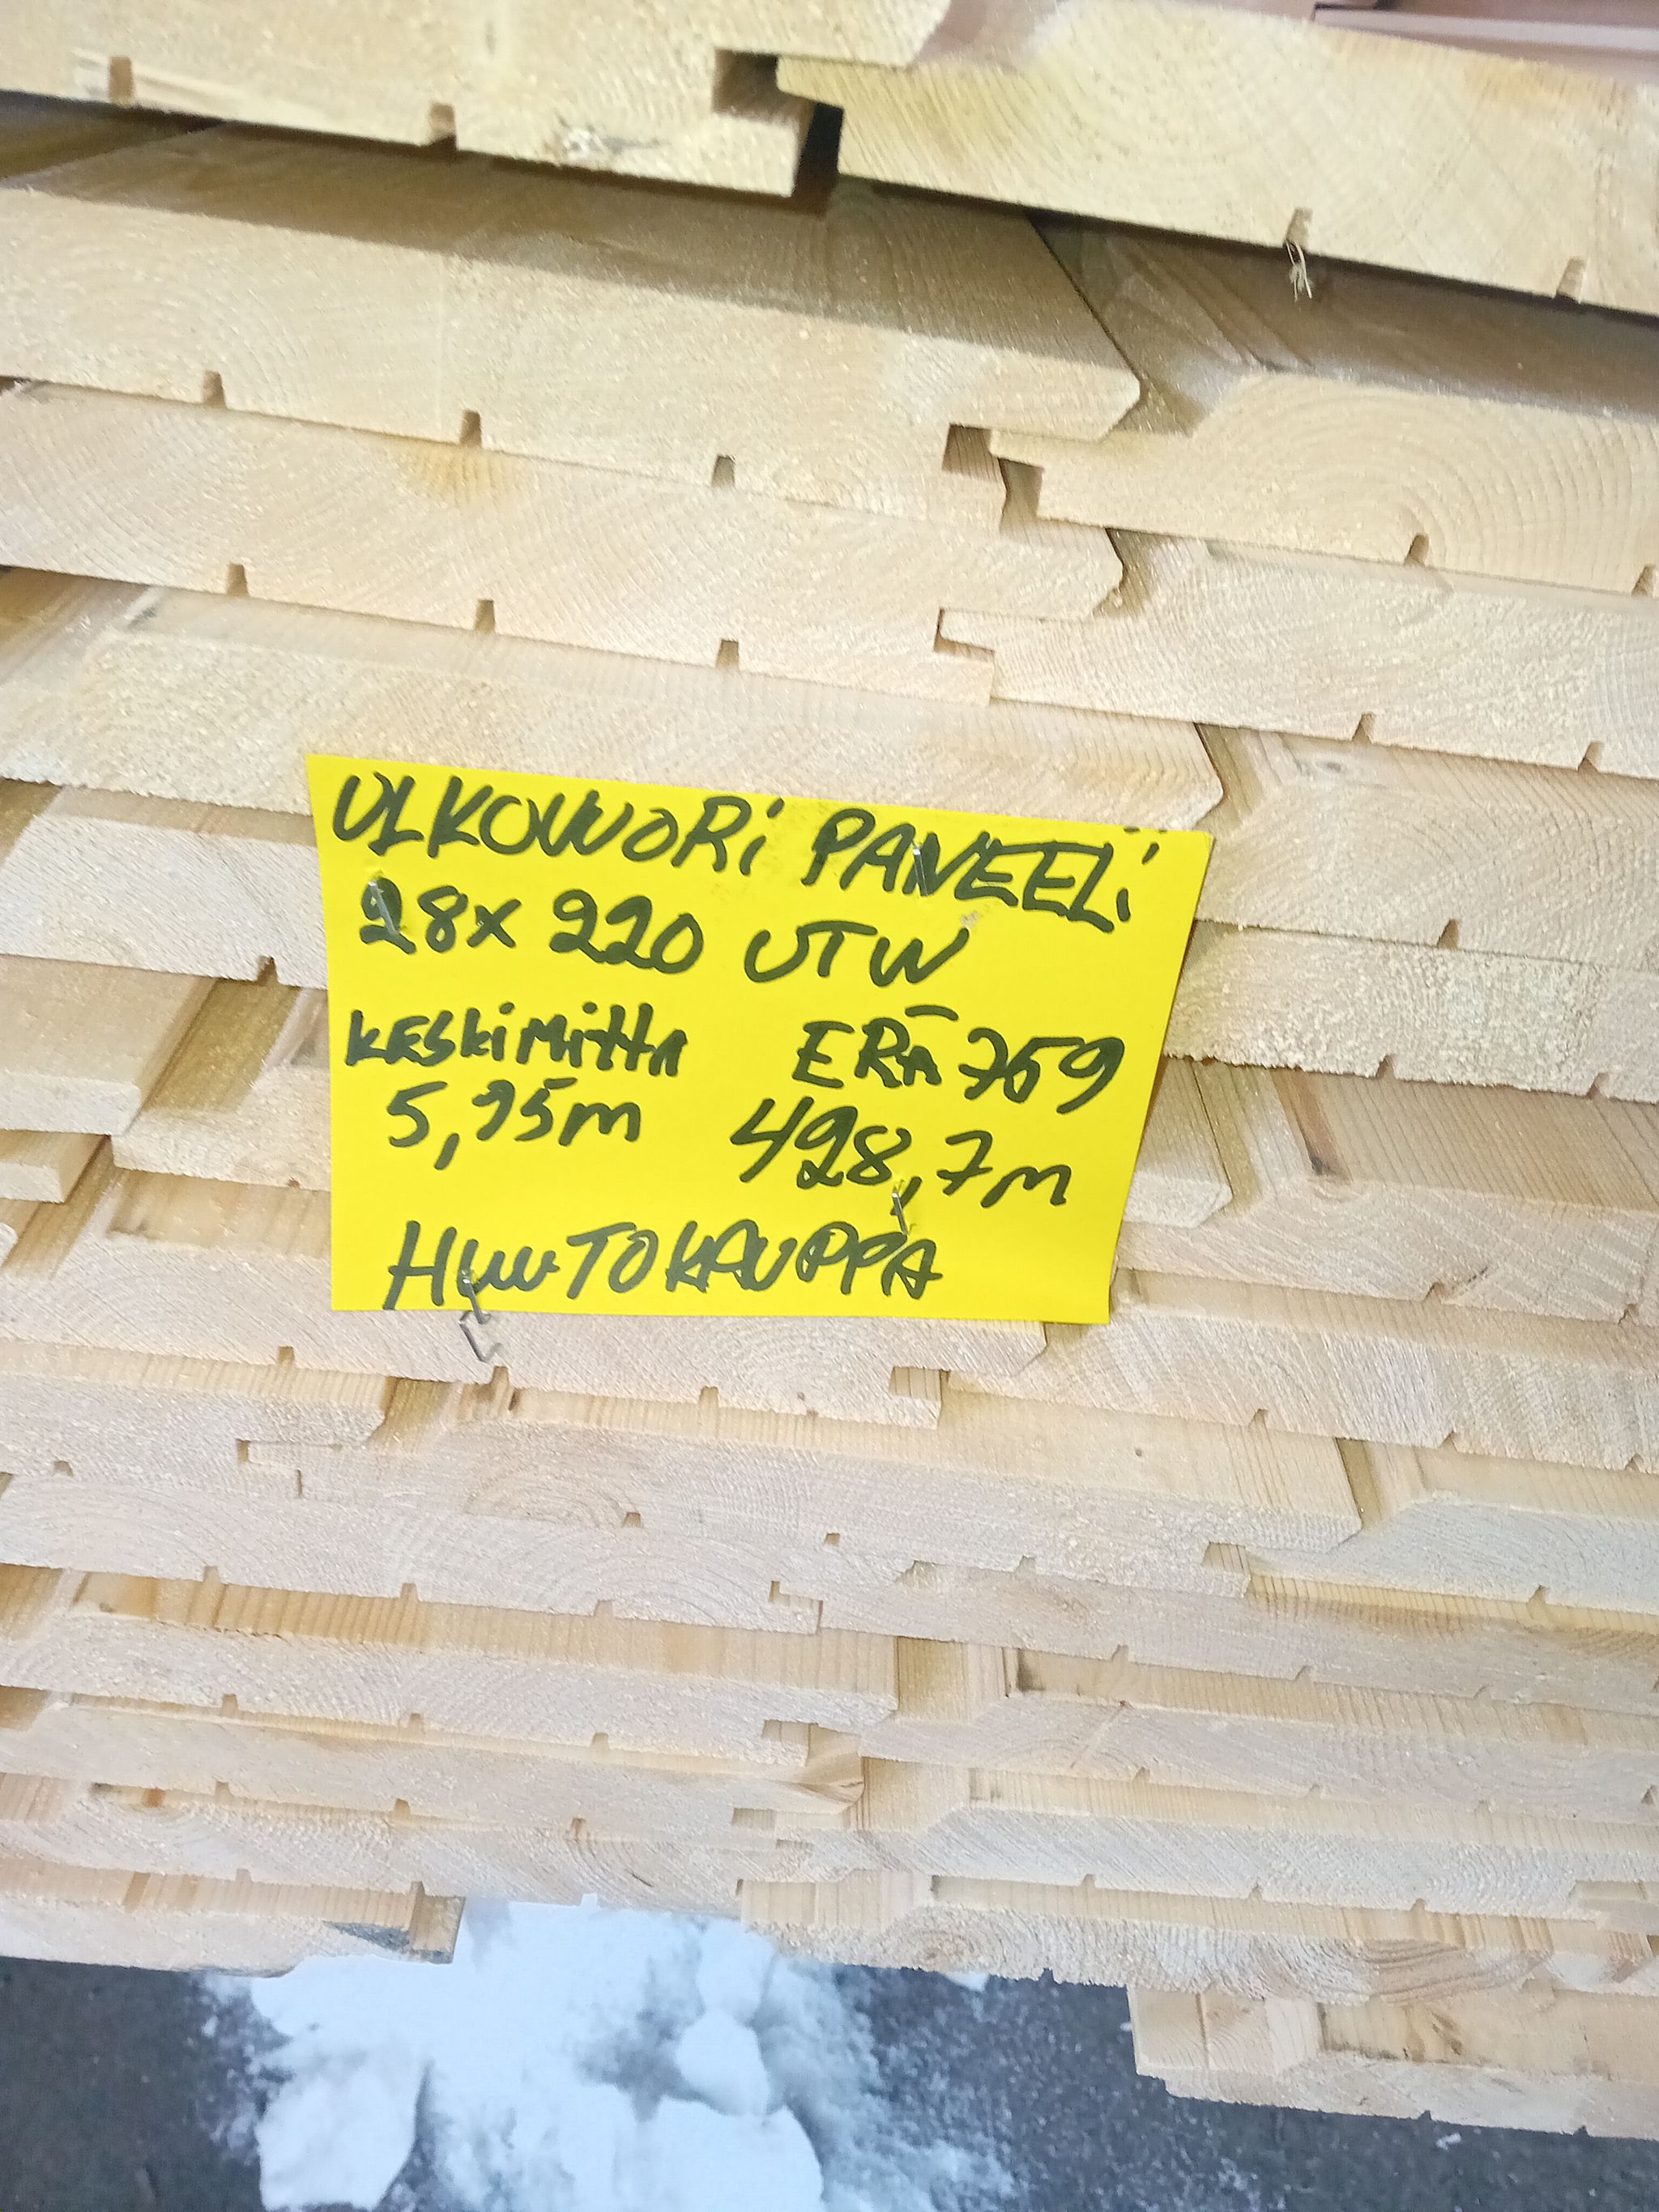 ULKOVUORi PANEELi
28x220 UTW
KESKiMiTTA ERÄ 769
5,95m 498,7m
HUUTOKAUPPA